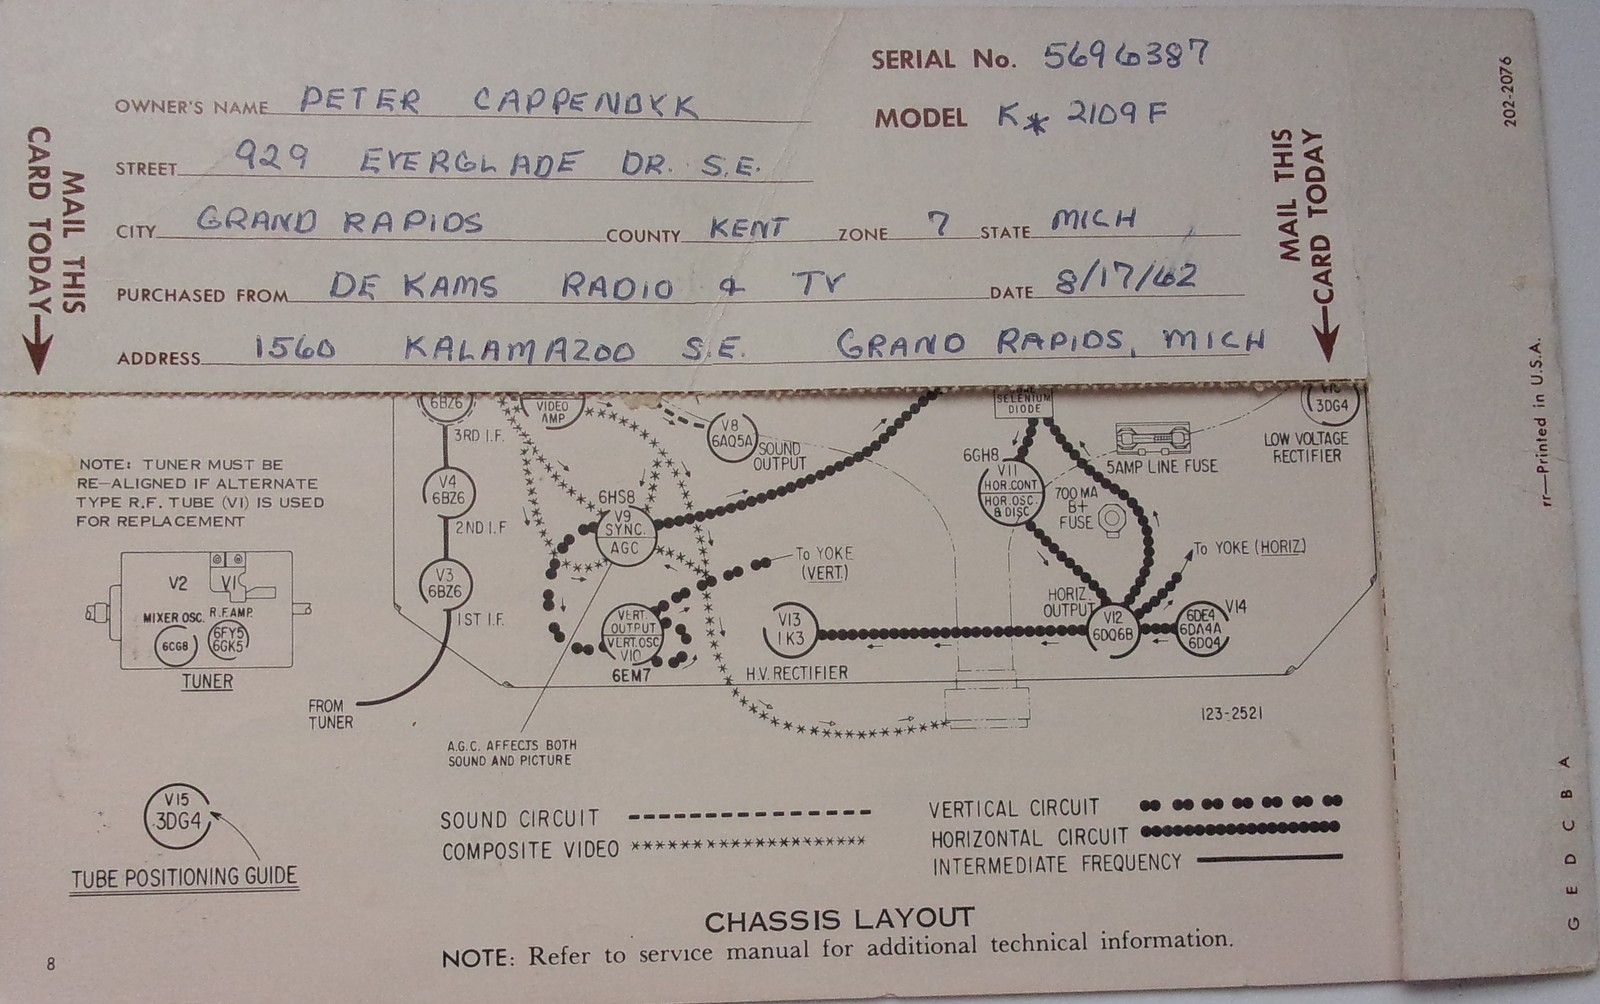 SERIAL No. 5696387
OWNER'S NAME PETER CAPPENDYK
MODEL K* 2109F
STREET 929 EVERGLADE DR. S.E.
CITY GRAND RAPIDS COUNTY KENT ZONE 7 STATE MICH
PURCHASED FROM DE KAMS RADIO & TV DATE 8/17/62
ADDRESS 1560 KALAMAZOO S.E. GRAND RAPIDS, MICH
MAIL THIS
CARD TODAY
MAIL THIS
CARD TODAY
202-2076
rr—Printed in U.S.A.
G E D C B A
6BZ6
3RD I.F.
VIDEO
AMP
V8
6AQ5A
SOUND
OUTPUT
SELENIUM
DIODE
3DG4
LOW VOLTAGE
RECTIFIER
5AMP LINE FUSE
6GH8
V11
HOR.CONT
HOR.OSC.
& DISC
700 MA
B+
FUSE
NOTE: TUNER MUST BE
RE-ALIGNED IF ALTERNATE
TYPE R.F. TUBE (V1) IS USED
FOR REPLACEMENT
V4
6BZ6
2ND I.F
6HS8
V9
SYNC.
AGC
TO YOKE
(VERT.)
TO YOKE (HORIZ.)
V3
6BZ6
1ST I.F.
V2 V1
MIXER OSC. R.F. AMP.
6CG8
6FY5
6GK5
TUNER
VERT.
OUTPUT
VERT.OSC
V10
6EM7
V13
1K3
H.V. RECTIFIER
HORIZ.
OUTPUT
V12
6DQ6B
6DE4
6DA4A
6DQ4
V14
FROM
TUNER
123-2521
A.G.C. AFFECTS BOTH
SOUND AND PICTURE
V15
3DG4
TUBE POSITIONING GUIDE
SOUND CIRCUIT
COMPOSITE VIDEO
VERTICAL CIRCUIT
HORIZONTAL CIRCUIT
INTERMEDIATE FREQUENCY
CHASSIS LAYOUT
NOTE: Refer to service manual for additional technical information.
8